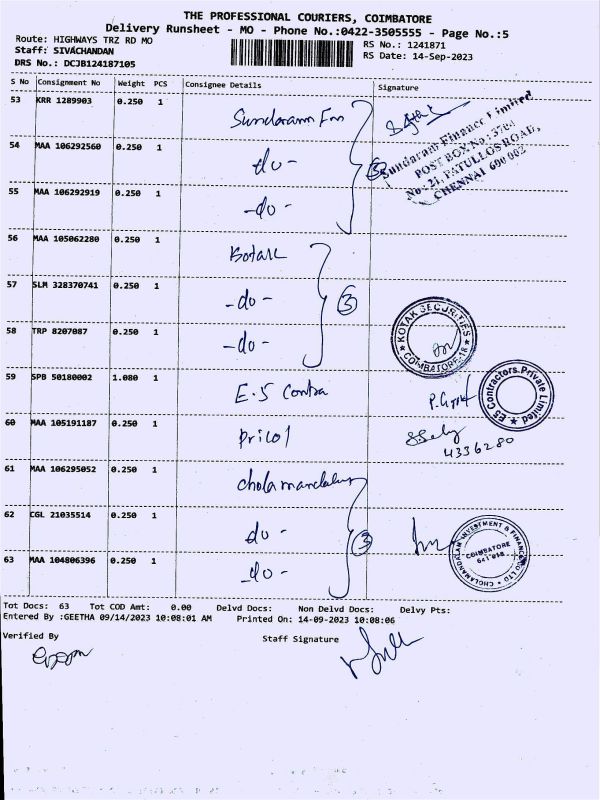 THE PROFESSIONAL COURIERS, COIMBATORE
Delivery Runsheet - MO - Phone No.:0422-3505555 - Page No.:5
Route: HIGHWAYS TRZ RD MO
RS No.: 1241871
Staff: SIVACHANDAN
RS Date: 14-Sep-2023
DRS No.: DCJB124187105
S No Consignment No Weight PCS Consignee Details Signature
53 KRR 1289903 0.250 1 Sundaram Fin
54 MAA 106292560 0.250 1 do -
55 MAA 106292919 0.250 1 -do-
3
Sundaram Finance Limited
POST BOX No: 3703
No: 21, PATULLOS ROAD,
CHENNAI 600 002
56 MAA 105062280 0.250 1 Kotak
57 SLM 328370741 0.250 1 -do-
58 TRP 8207087 0.250 1 -do-
3
KOTAK SECURITIES
COIMBATORE-18
59 SPB 50180002 1.080 1 E.S Contra
ES Contractors Private Limited
60 MAA 105191187 0.250 1 Pricol
4336280
61 MAA 106295052 0.250 1 cholamandalam
62 CGL 21035514 0.250 1 do -
63 MAA 104806396 0.250 1 -do-
3
CHOLAMANDALAM INVESTMENT & FINANCE CO LTD
COIMBATORE
641 018
Tot Docs: 63 Tot COD Amt: 0.00 Delvd Docs: Non Delvd Docs: Delvy Pts:
Entered By :GEETHA 09/14/2023 10:08:01 AM Printed On: 14-09-2023 10:08:06
Verified By Staff Signature